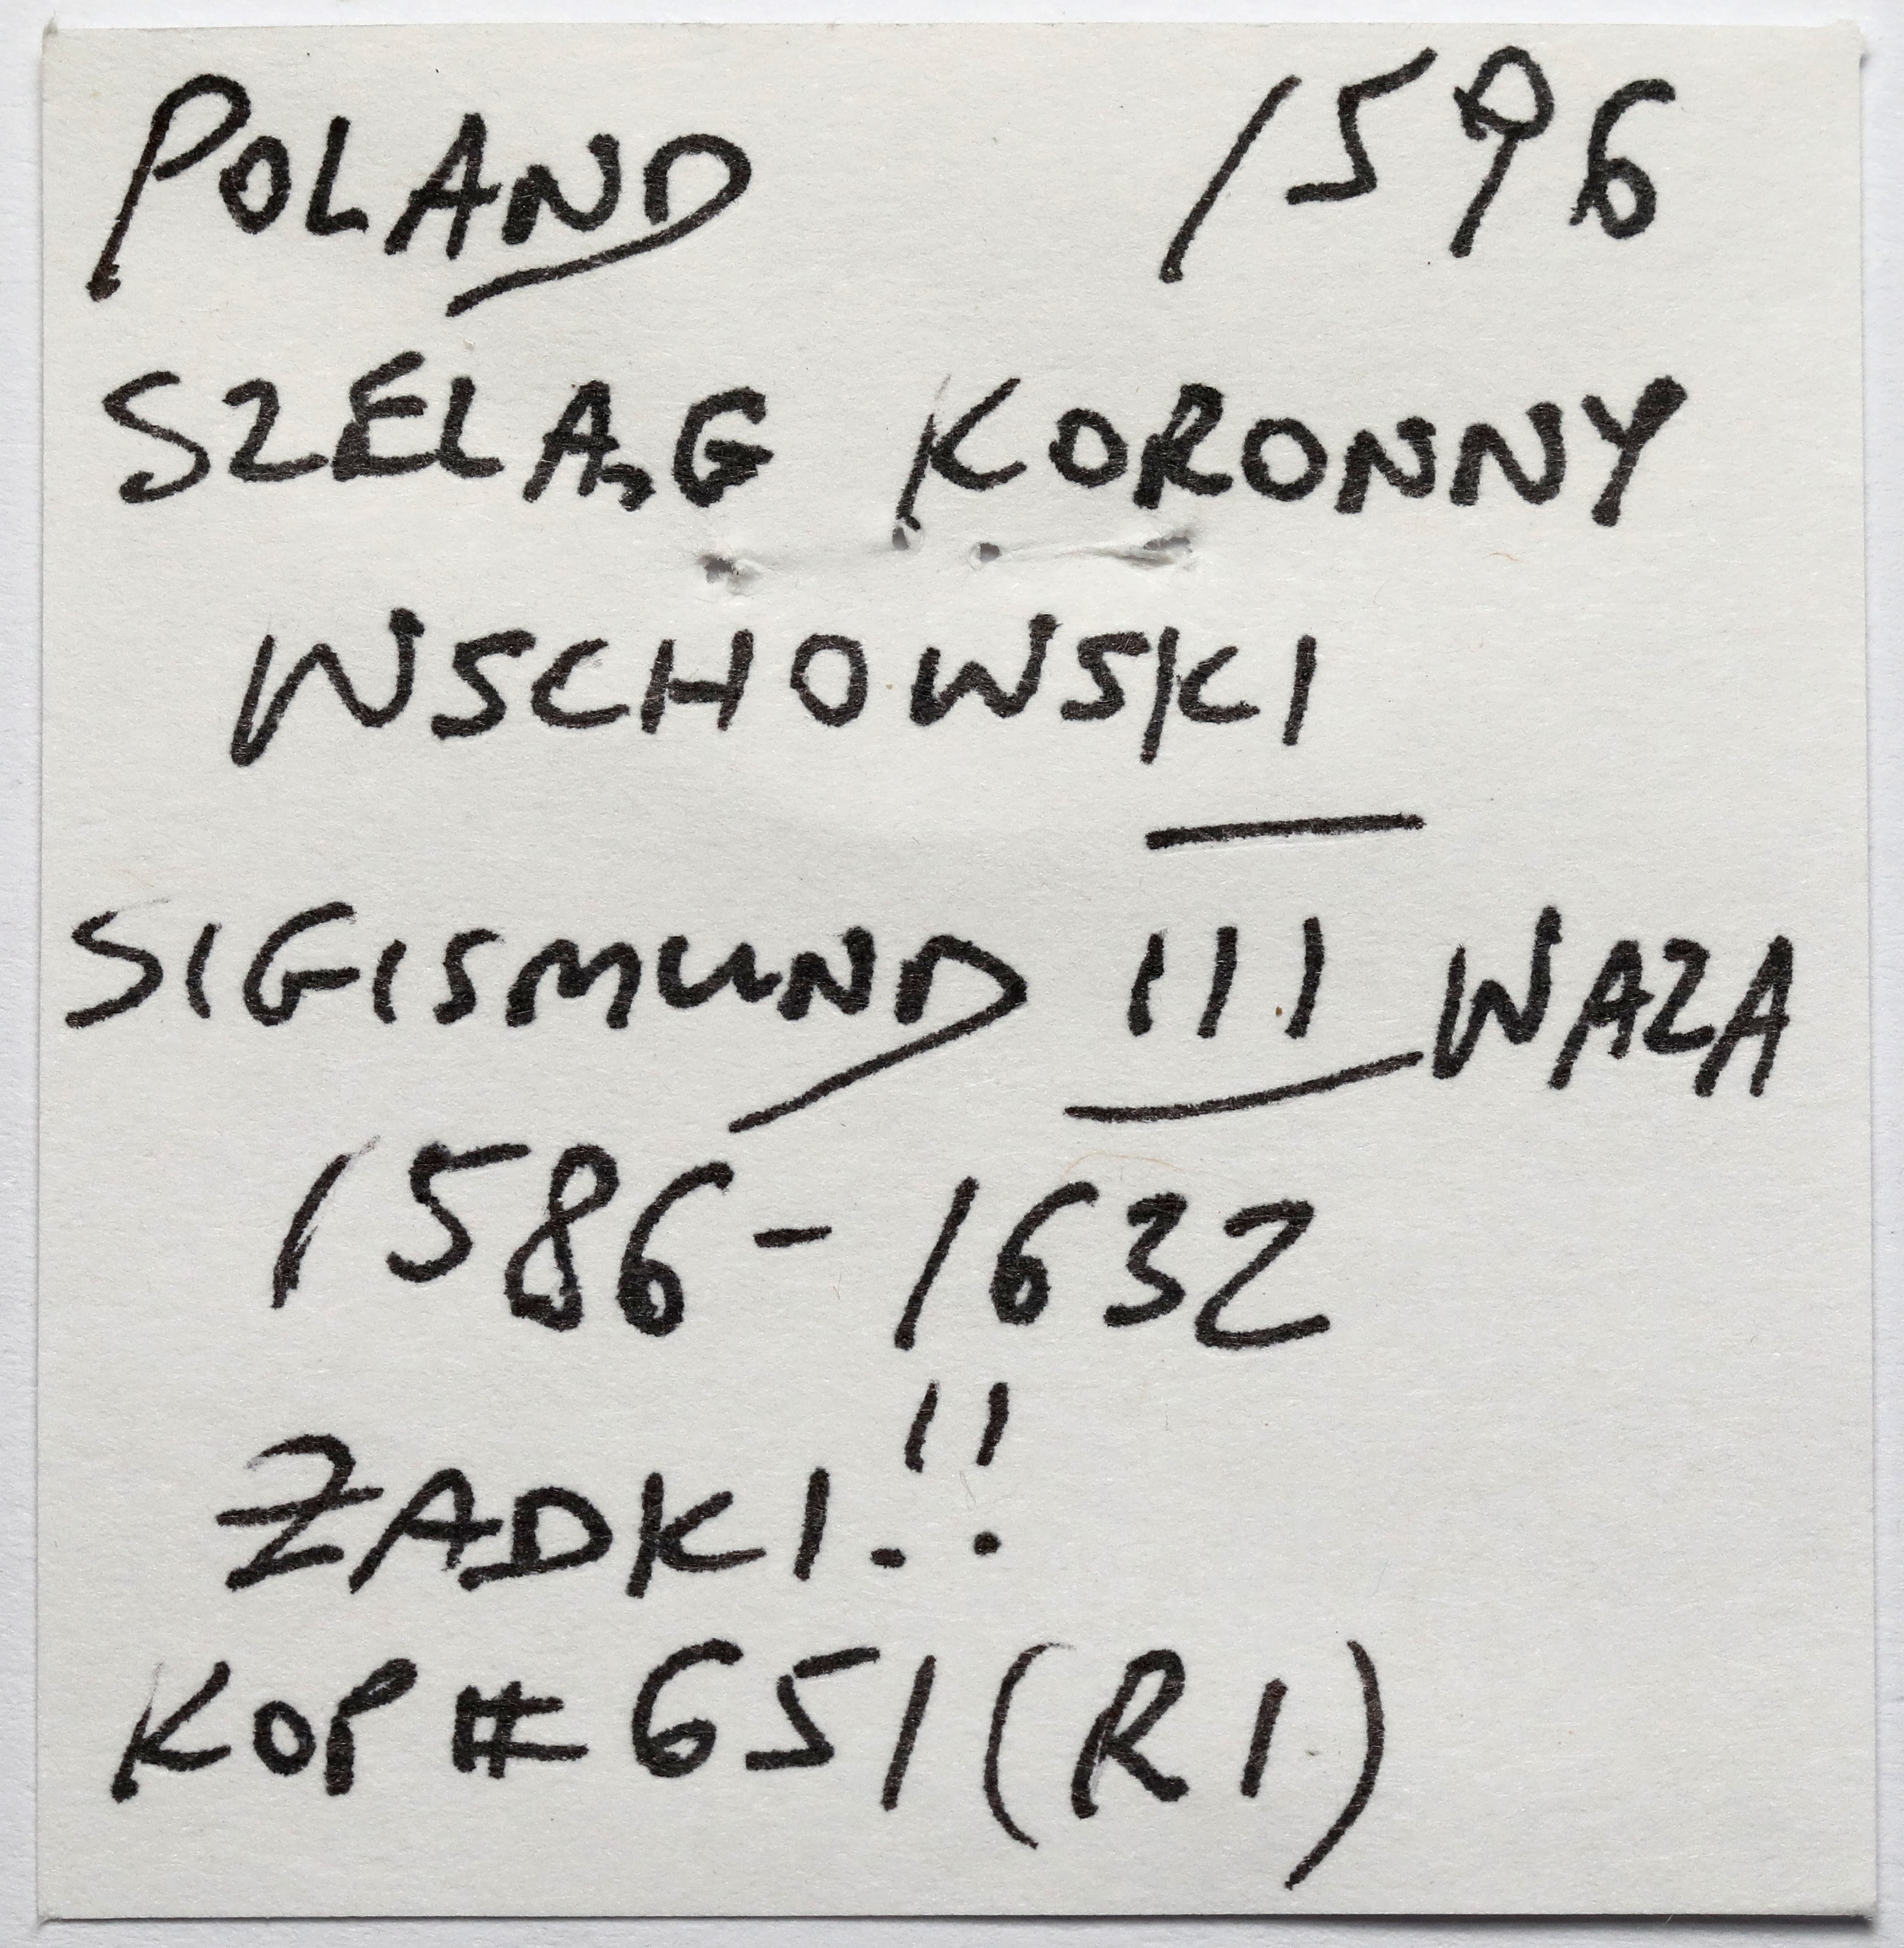 POLAND 1596
SZELĄG KORONNY
WSCHOWSKI
SIGISMUND III WAZA
1586-1632
ZADKI!!
KOP # 651 (R1)